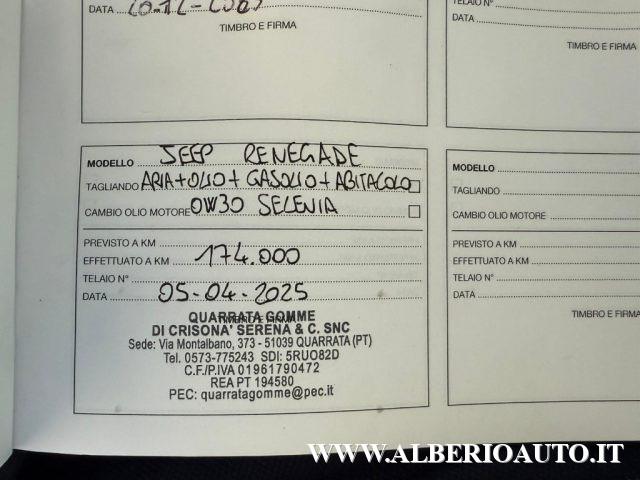 DATA
TIMBRO E FIRMA
TELAIO N°
DATA
TIMBRO E FIRMA
MODELLO JEEP RENEGADE
TAGLIANDO ARIA+OLIO+ GASOLIO+ ABITACOLO
CAMBIO OLIO MOTORE 0W30 SELENIA
PREVISTO A KM
EFFETTUATO A KM 174.000
TELAIO N°
DATA 05-04-2025
TIMBRO E FIRMA
QUARRATA GOMME
DI CRISONA' SERENA & C. SNC
Sede: Via Montalbano, 373 - 51039 QUARRATA (PT)
Tel. 0573-775243 SDI: 5RUO82D
C.F./P.IVA 01961790472
REA PT 194580
PEC: quarratagomme@pec.it
MODELLO
TAGLIANDO
CAMBIO OLIO MOTORE
PREVISTO A KM
EFFETTUATO A KM
TELAIO N°
DATA
TIMBRO E FIRMA
WWW.ALBERIOAUTO.IT